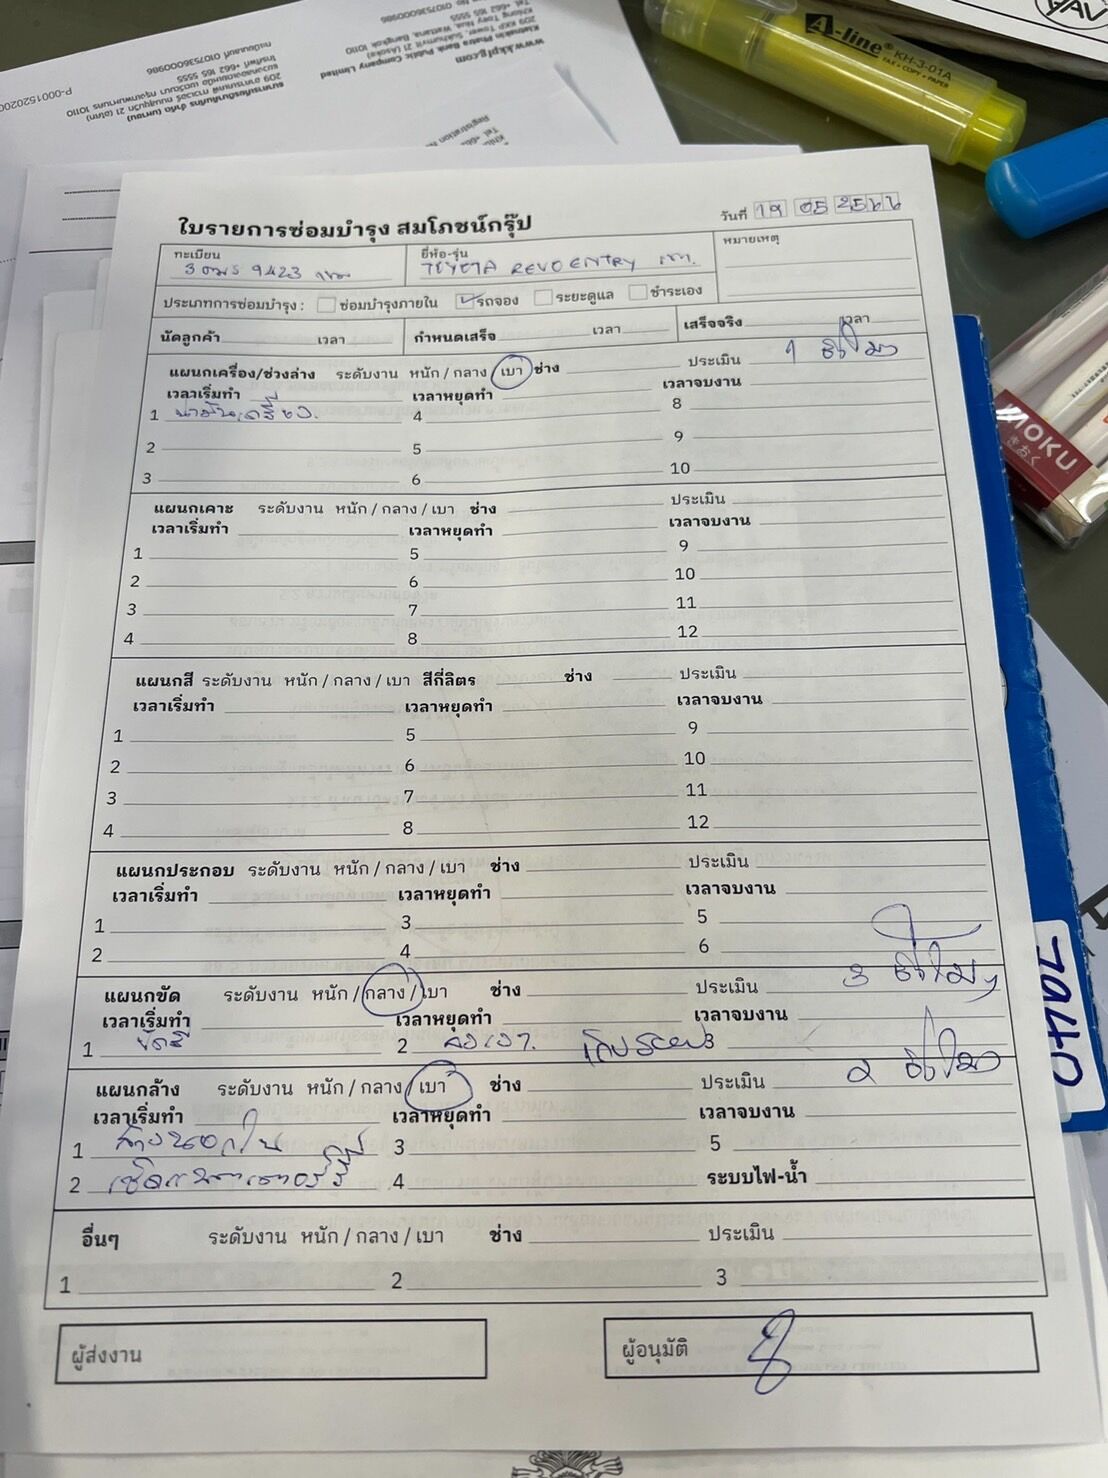 www.kkpfg.com
Kiatnakin Phatra Bank Public Company Limited
209 KKP Tower, Sukhumvit 21 (Asoke)
Khlong Toey Nua, Wattana, Bangkok 10110
Tel. +662 165 5555
ธนาคารเกียรตินาคินภัทร จำกัด (มหาชน)
โทรศัพท์ +662 165 5555
ทะเบียนเลขที่ 0107536000986
A-line
KH-3-01A
FAX • COPY • PAPER
MOKU
ใบรายการซ่อมบำรุง สมโภชน์กรุ๊ป
วันที่ 19 05 2566
ทะเบียน ยี่ห้อ-รุ่น หมายเหตุ
9423 กทม TOYOTA REVO ENTRY
ประเภทการซ่อมบำรุง : ซ่อมบำรุงภายใน รถจอง ระยะดูแล ชำระเอง
นัดลูกค้า เวลา กำหนดเสร็จ เวลา เสร็จจริง เวลา
แผนกเครื่อง/ช่วงล่าง ระดับงาน หนัก / กลาง / เบา ช่าง ประเมิน 1 ชั่วโมง
เวลาเริ่มทำ เวลาหยุดทำ เวลาจบงาน
1 น้ำมันเครื่อง 4 8
2 5 9
3 6 10
แผนกเคาะ ระดับงาน หนัก / กลาง / เบา ช่าง ประเมิน
เวลาเริ่มทำ เวลาหยุดทำ เวลาจบงาน
1 5 9
2 6 10
3 7 11
4 8 12
แผนกสี ระดับงาน หนัก / กลาง / เบา สีกี่ลิตร ช่าง ประเมิน
เวลาเริ่มทำ เวลาหยุดทำ เวลาจบงาน
1 5 9
2 6 10
3 7 11
4 8 12
แผนกประกอบ ระดับงาน หนัก / กลาง / เบา ช่าง ประเมิน
เวลาเริ่มทำ เวลาหยุดทำ เวลาจบงาน
1 3 5
2 4 6
แผนกขัด ระดับงาน หนัก / กลาง / เบา ช่าง ประเมิน 3 ชั่วโมง
เวลาเริ่มทำ เวลาหยุดทำ เวลาจบงาน
1 ขัดสี 2 ลงเงา เก็บรอย 3
แผนกล้าง ระดับงาน หนัก / กลาง / เบา ช่าง ประเมิน 2 ชั่วโมง
เวลาเริ่มทำ เวลาหยุดทำ เวลาจบงาน
1 ล้างนอกใน 3 5
2 เช็คแบตเตอรี่ 4 ระบบไฟ-น้ำ
อื่นๆ ระดับงาน หนัก / กลาง / เบา ช่าง ประเมิน
1 2 3
ผู้ส่งงาน ผู้อนุมัติ